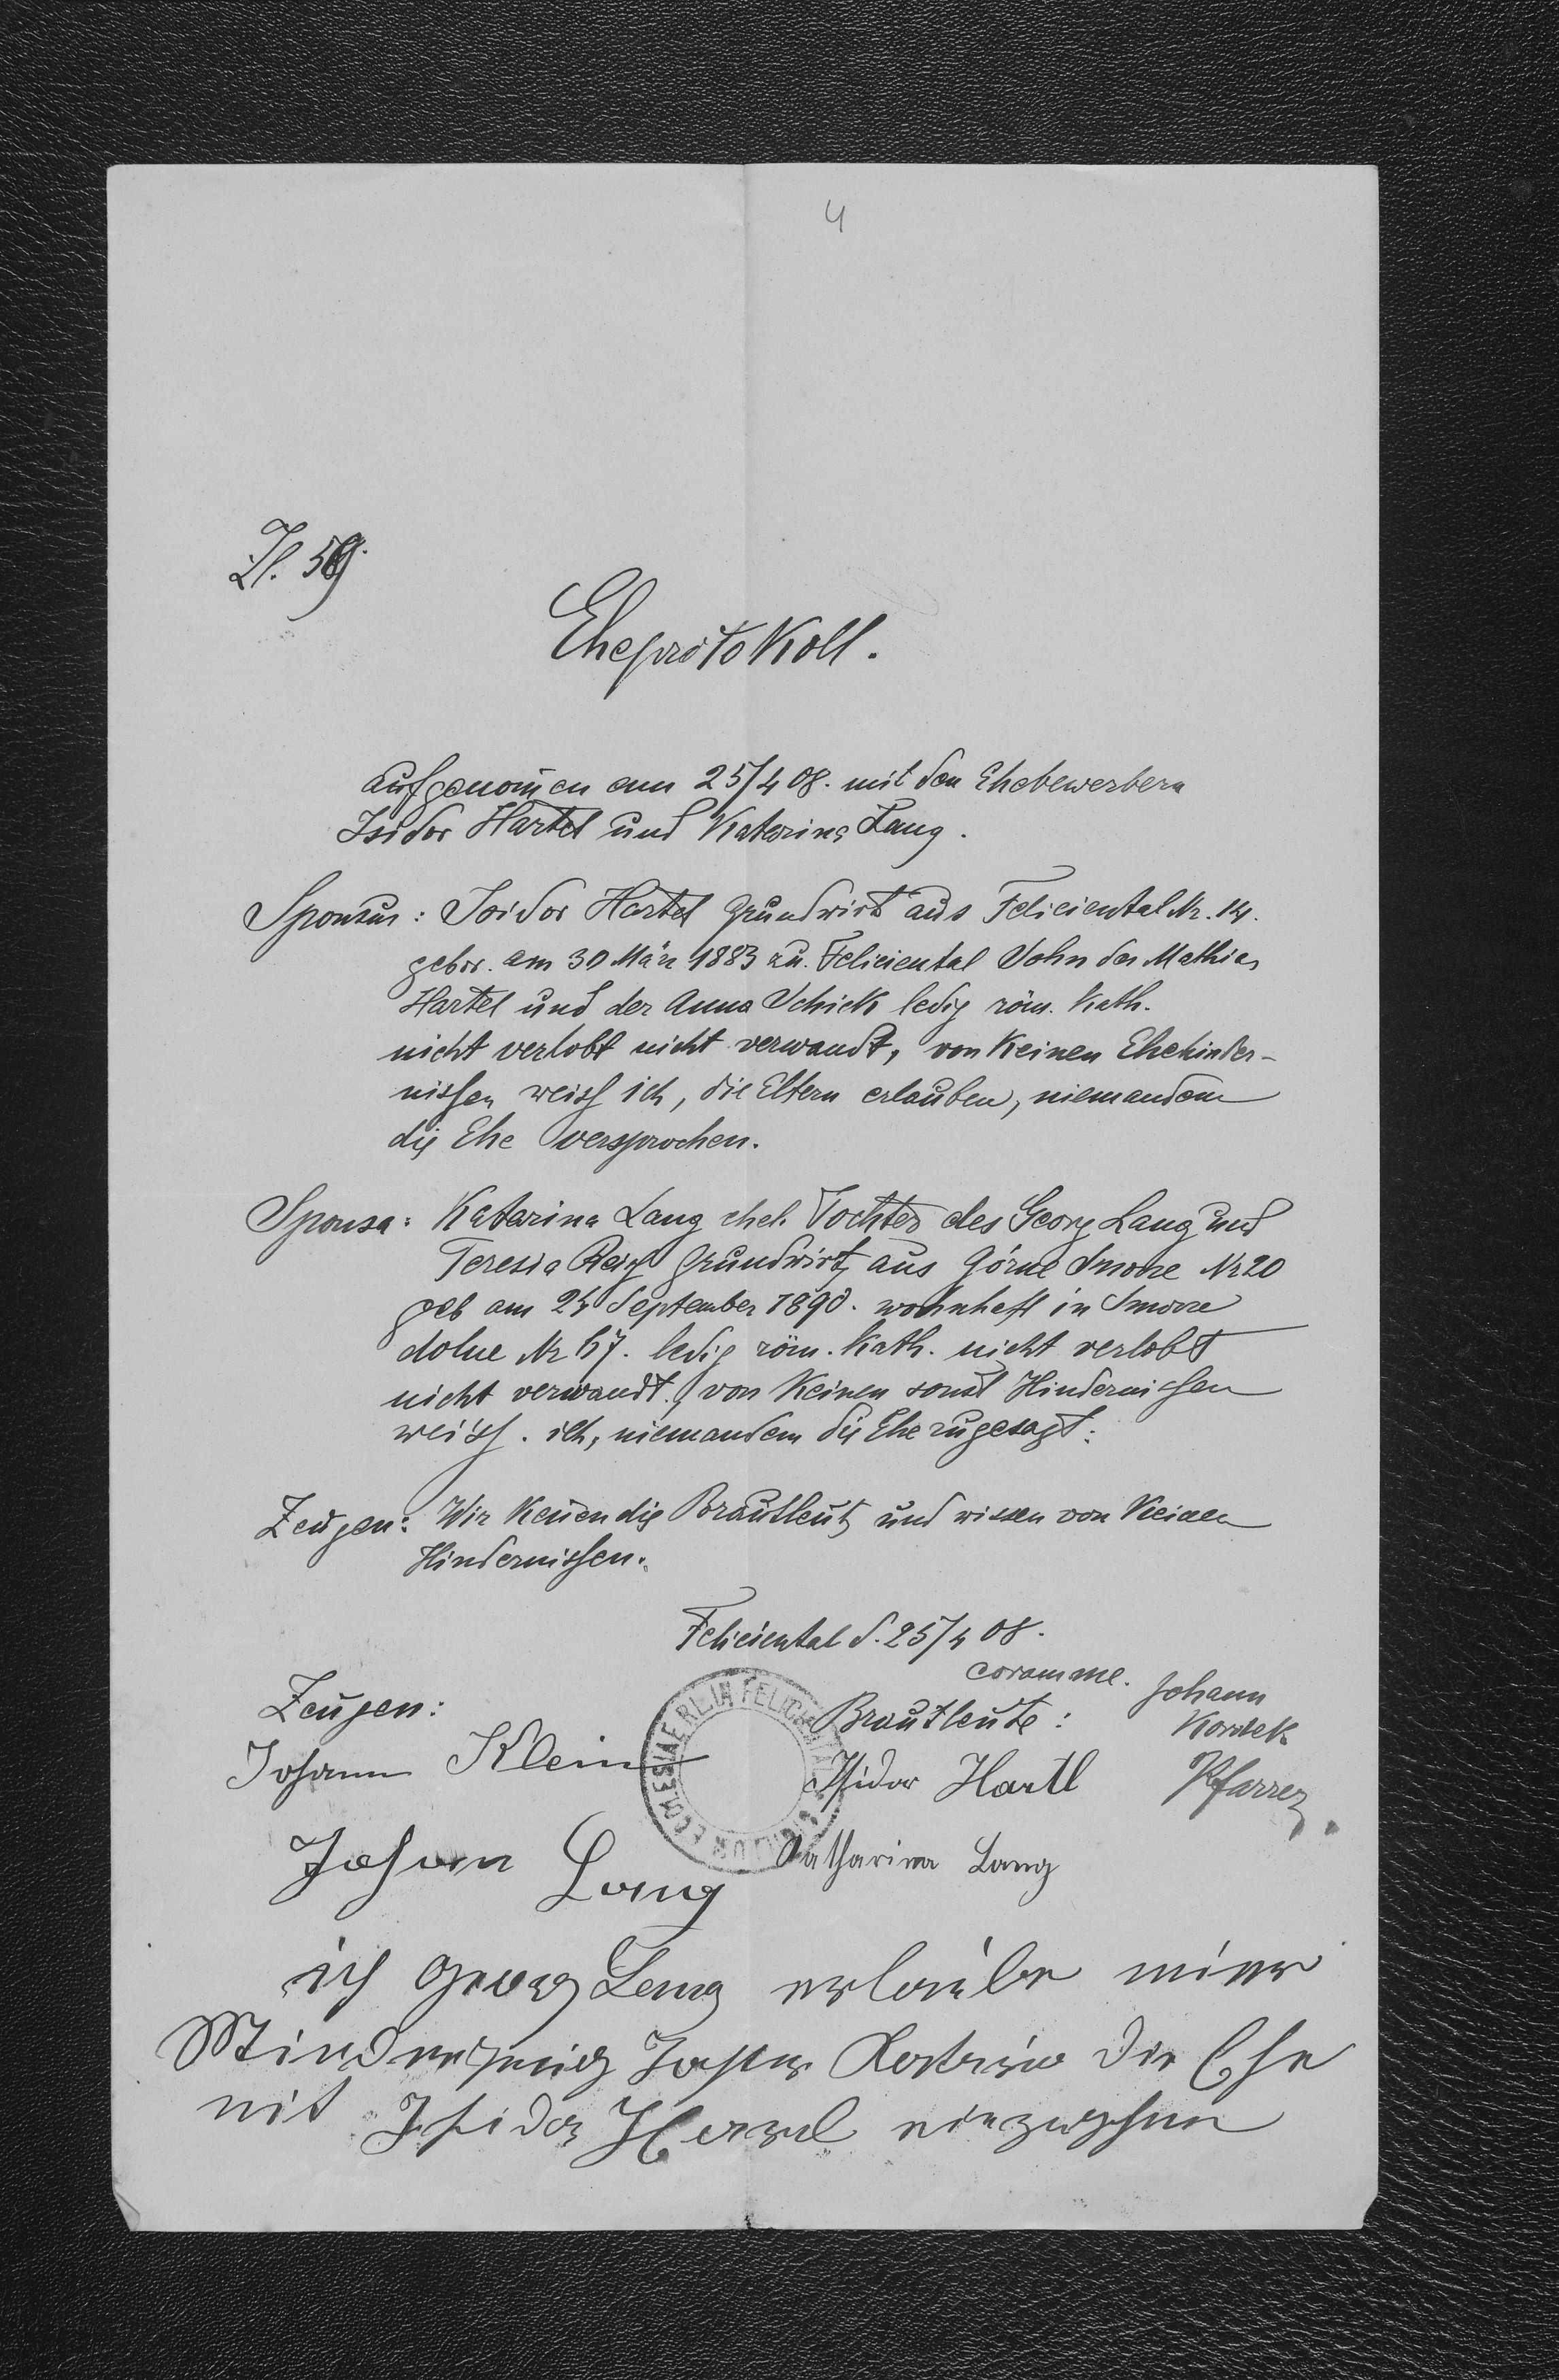 4
Zl. 59
Eheprotokoll.
aufgenom̄en am 25/4 08. mit den Ehebewerbern
Isidor Hartel und Katarina Lang.
Sponsus: Isidor Hartel Grundwirt aus Feliciental Nr. 14.
gebor. am 30 März 1883 zu. Feliciental Sohn des Mathias
Hartel und der Anna Schick ledig röm. kath.
nicht verlobt nicht verwandt, von keinen Ehehinder-
nissen weiss ich, die Eltern erlauben, niemandem
die Ehe versprochen.
Sponsa: Katarina Lang ehel. Tochter des Georg Lang und
Teresia Grundwirt aus Górne Smorze Nr 20
geb am 24 September 1890. wohnhaft in Smorze
dolne Nr 67. ledig röm. kath. nicht verlobt
nicht verwandt, von keinen sonst Hindernissen
weiss. ich, niemandem die Ehe zugesagt.
Zeugen: Wir ken̄en die Brautleute und wissen von keinen
Hindernissen.
Feliciental d. 25/4 08.
coram me. Johann
Kordek
Pfarrer
Zeugen:
Johann Klein
Johan Lang
Brautleute:
Isidor Hartl
Katharina Lang
ECCLESIAE R. L. IN FELICIENTAL
ich Georg Lang erlaube miner
Minderjerig Tochter Katrina die Ehe
mit Isidor einzugehen